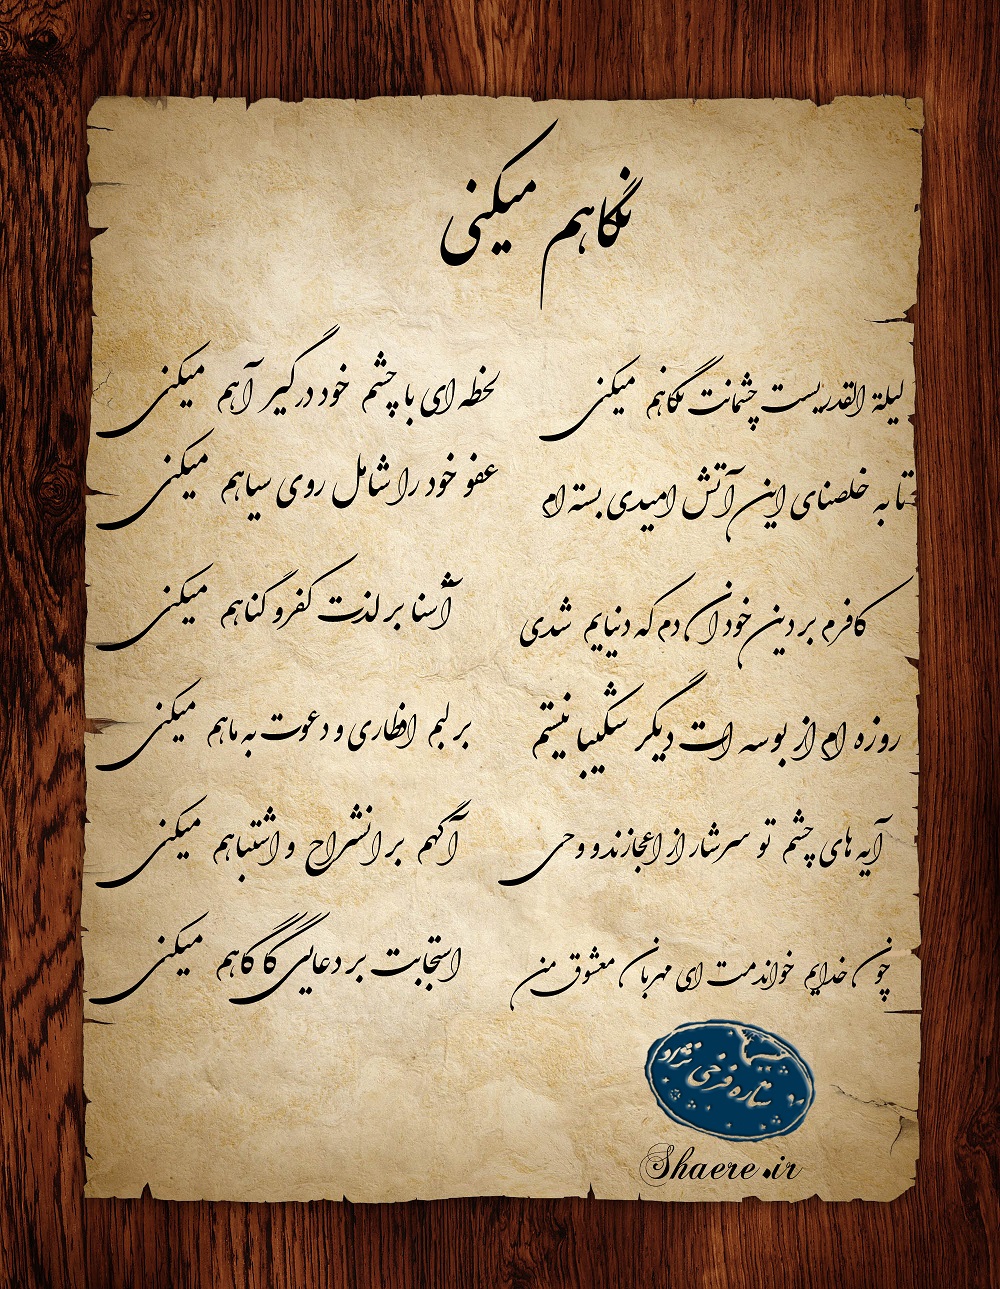 نگاهم میکنی
لیلة القدریست چشمانت نگاهم میکنی لحظه ای با چشم خود درگیر آهم میکنی
تا به خلصنای این آتش امیدی بسته ام عفو خود را شامل روی سیاهم میکنی
کافرم بر دین خود آن دم که دنیایم شدی آشنا بر لذت کفر و گناهم میکنی
روزه ام از بوسه ات دیگر شکیبا نیستم بر لبم افطاری و دعوت به ماهم میکنی
آیه های چشم تو سرشار از اعجازند و وحی آگهم بر انشراح و اشتباهم میکنی
چون خدایم خواندمت ای مهربان معشوق من استجابت بر دعایی گاگاهم میکنی
ستاره فرخی نژاد
Shaere.ir